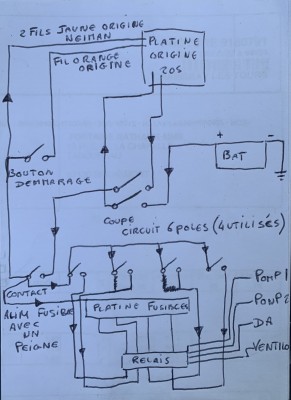 2 FILS JAUNE ORIGINE
NEIMAN
FIL ORANGE
ORIGINE
PLATINE
ORIGINE
205
BOUTON
DEMMARAGE
+
-
BAT
COUPE
CIRCUIT 6 POLES (4 UTILISÉS)
CONTACT
ALIM FUSIBLE
AVEC
UN
PEIGNE
PLATINE FUSIBLES
RELAIS
POMP 1
POMP 2
DA
VENTILO